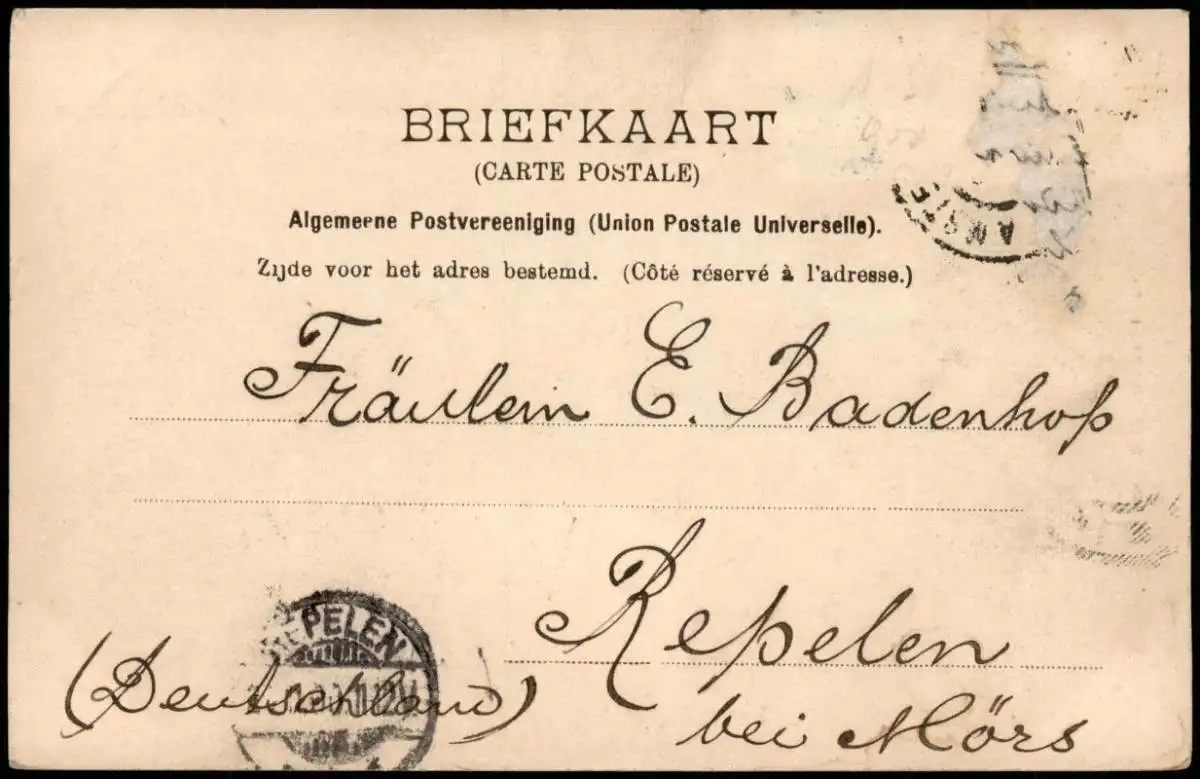 BRIEFKAART
(CARTE POSTALE)
Algemeene Postvereeniging (Union Postale Universelle).
Zijde voor het adres bestemd. (Côté réservé à l'adresse.)
Fräulein E. Badenhop
Repelen
bei Mörs
(Deutschland)
REPELEN